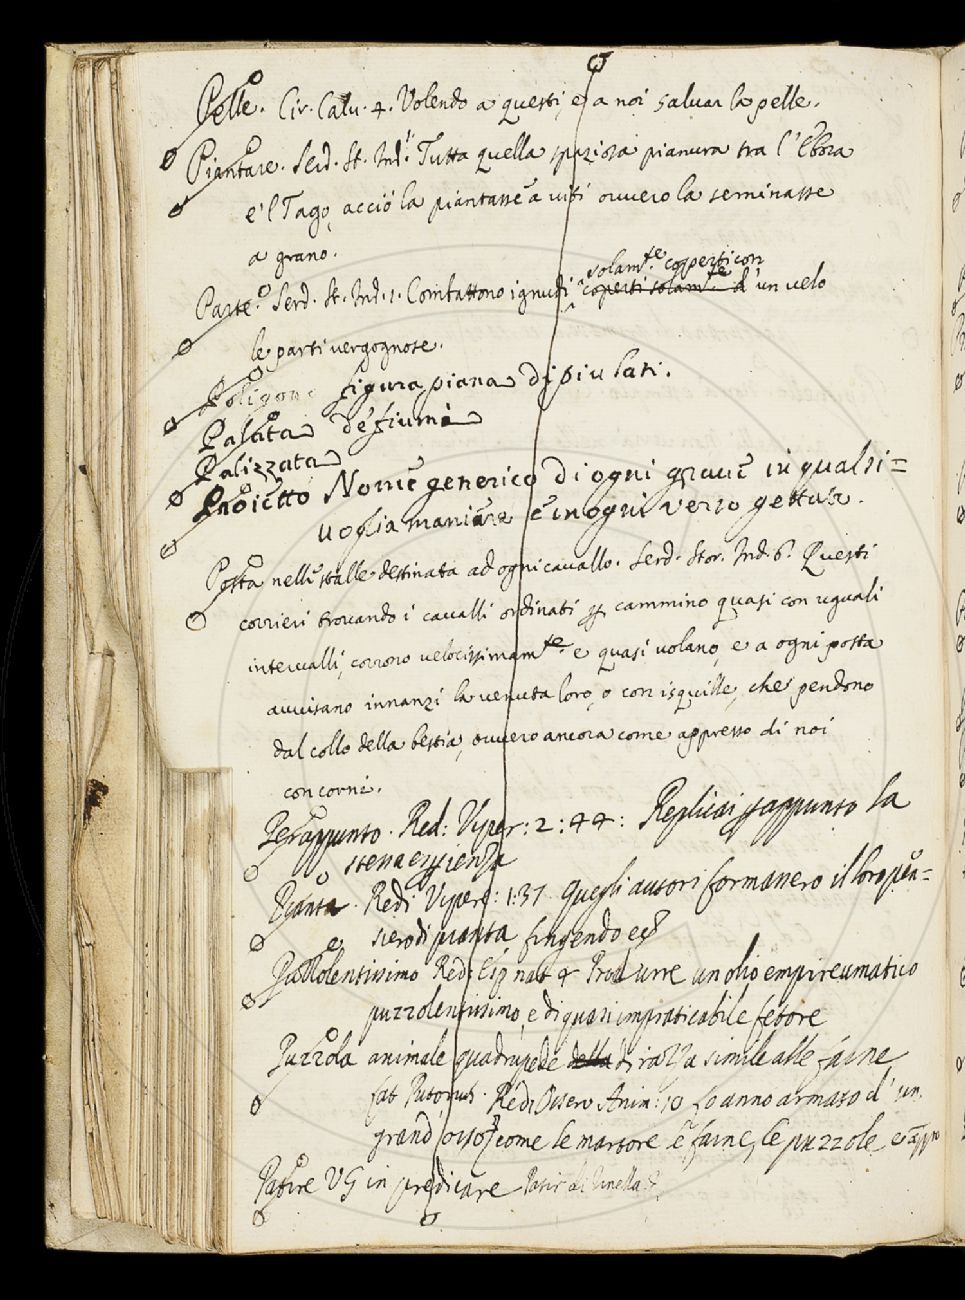 Pelle. Cir. Calv. 4. Volendo a questi, e a noi salvar la pelle.
Piantare. Serd. St. Ind. Tutta quella spaziosa pianura tra l'Ebora
e 'l Tago, acciò la piantasse a viti ovvero la seminasse
a grano.
solam.te copperti con
Parte. Serd. St. Ind. 1. Combattono ignudi coperti solam.te d'un velo
le parti vergognose.
Poligono figura piana di piu lati.
Palata de fiumi
Palizzata
Proietto Nome generico di ogni grave in qualsi=
voglia maniera e in ogni verso gettato.
Posta nelle stalle destinata ad ogni cavallo. Serd. Stor. Ind. 6. Questi
corrieri trovando i cavalli ordinati p cammino quasi con uguali
intervalli, corrono velocissimam.te e quasi volano, e a ogni posta
avvisano innanzi la venuta loro, o con isquille, che pendono
dal collo della bestia, ovvero ancora come appresso di noi
con corni.
Perappunto. Red: Viper: 2: 44: Replicai pappunto la
stessa espienza
Pianta. Redi Vipere: 1:37 Quegli autori formassero il loro pen=
siero di pianta fingendo
Puzzolentissimo Red: 4 Produrre un olio empireumatico
puzzolentissimo, e di quasi impraticabile fetore
Puzzola animale quadrupede della di razza simile alle faine
lat Putorius. Redi Osserv Anim: 10 fanno armato d'un
grand'osso come le martore e faine, le puzzole e
Patire VS in predicare